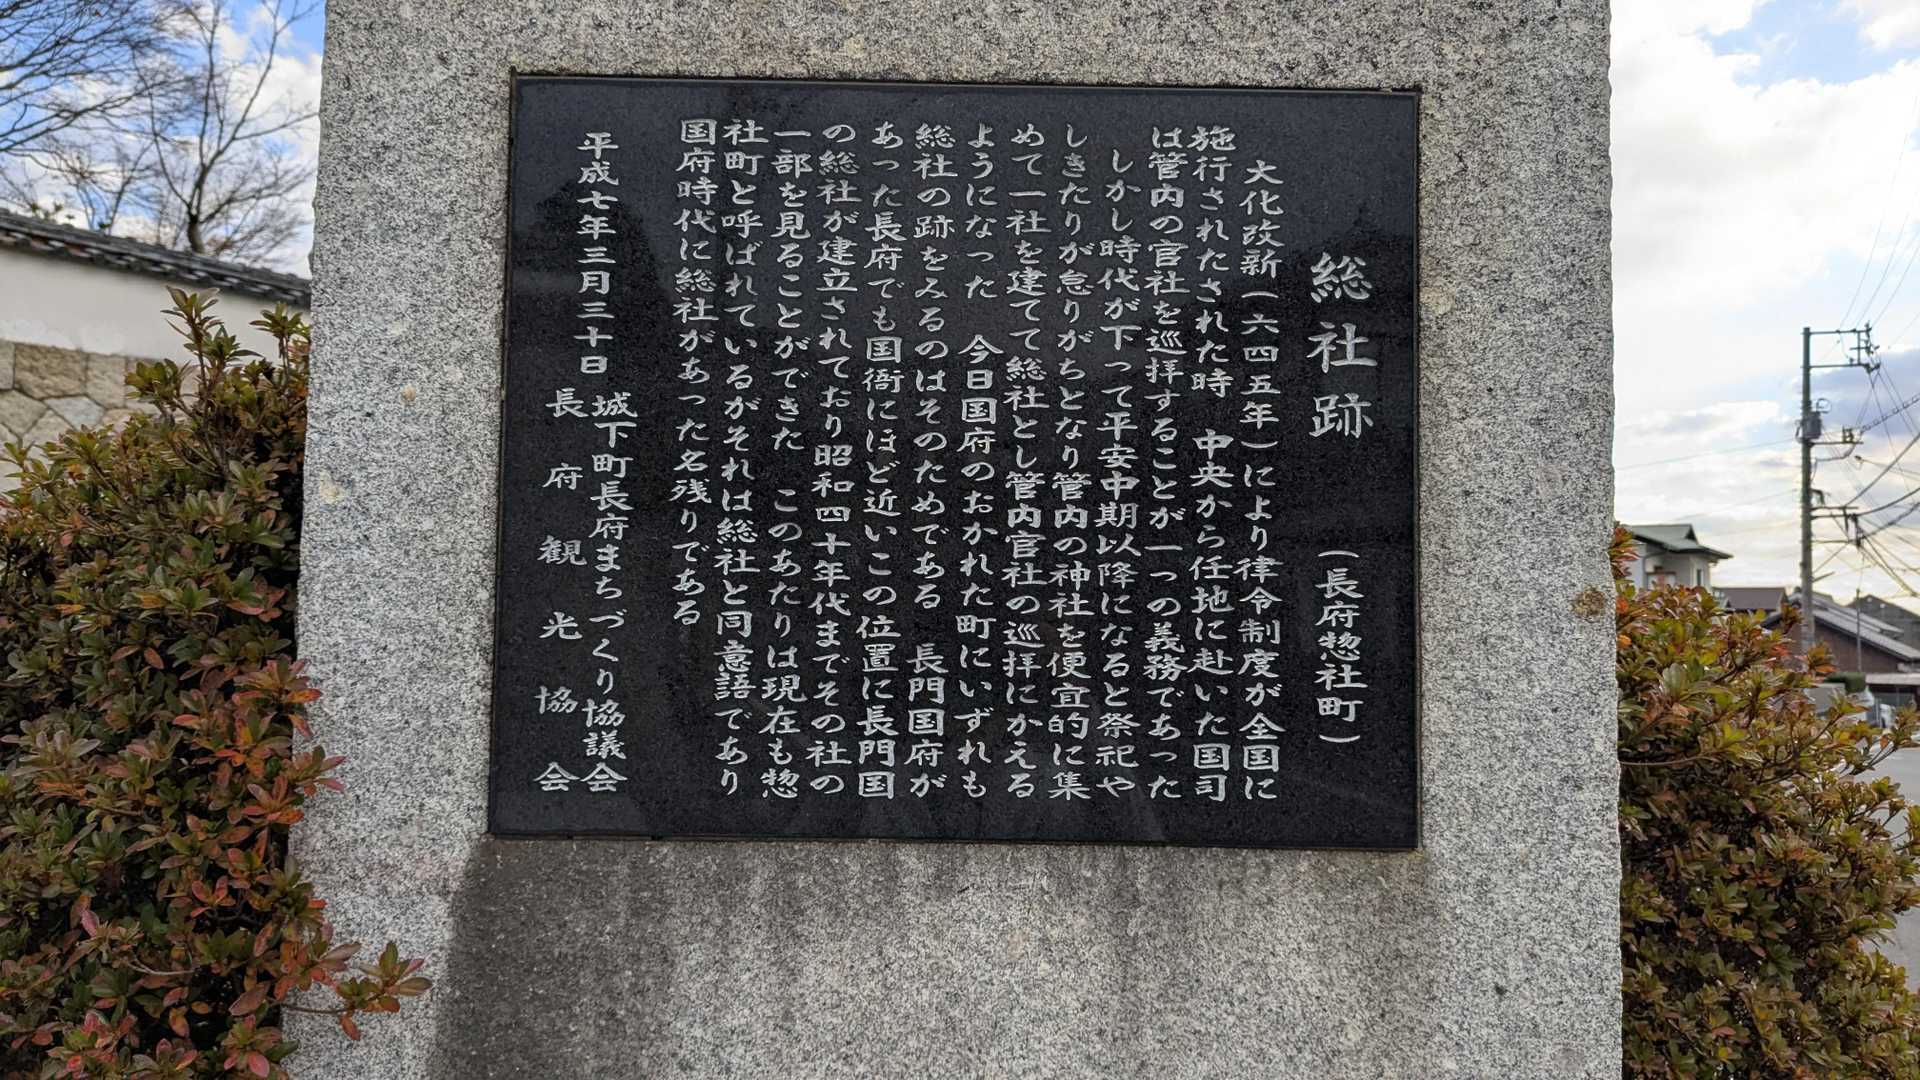 総社跡 （長府惣社町）
大化改新（六四五年）により律令制度が全国に
施行されたされた時 中央から任地に赴いた国司
は管内の官社を巡拝することが一つの義務であった
しかし時代が下って平安中期以降になると祭祀や
しきたりが怠りがちとなり管内の神社を便宜的に集
めて一社を建てて総社とし管内官社の巡拝にかえる
ようになった 今日国府のおかれた町にいずれも
総社の跡をみるのはそのためである 長門国府が
あった長府でも国衙にほど近いこの位置に長門国
の総社が建立されており昭和四十年代までその社の
一部を見ることができた このあたりは現在も惣
社町と呼ばれているがそれは総社と同意語であり
国府時代に総社があった名残りである
平成七年三月三十日
城下町長府まちづくり協議会
長府観光協会